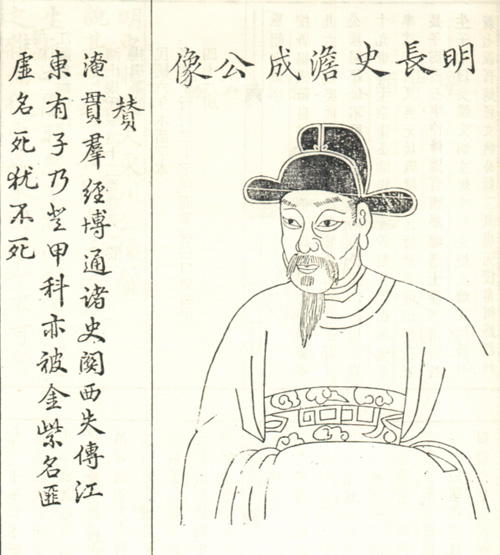 明長史澹成公像
赞
淹貫羣經博通诸史関西失傳江
東有子乃登甲科亦被金紫名匪
虛名死犹不死